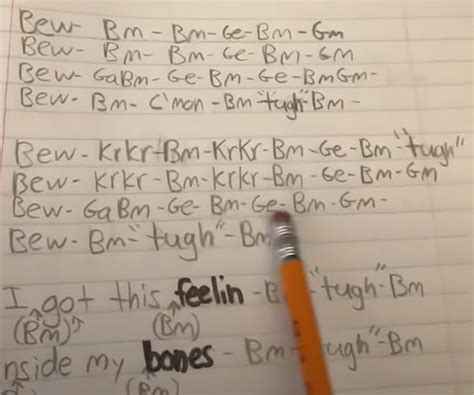 Bew- Bm - Bm-Ge-Bm -Gm
Bew- Bm- Bm-Ge-Bm-GM
Bew- GaBm-Ge-Bm-Ge-BmGm-
Bew- Bm- C'mon -Bm "tugh"Bm -
Bew-Krkr-Bm-KrKr-Bm-Ge-Bm"tugh"
Bew- KrKr-Bm-Krkr-Bm-Ge-Bm-GM
Bew- GaBm-Ge-Bm-Ge-Bm-Gm-
Bew-Bm-"tugh"-Bm
I got this feelin -Bm-"tugh"-Bm
(Bm) (Bm)
nside my bones - Bm-"tugh"-Bm
(Bm)